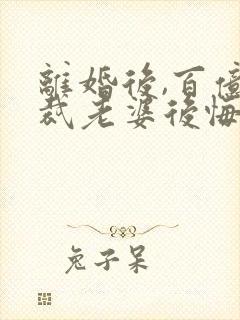 離婚後,百億
裁老婆後悔
兔子呆